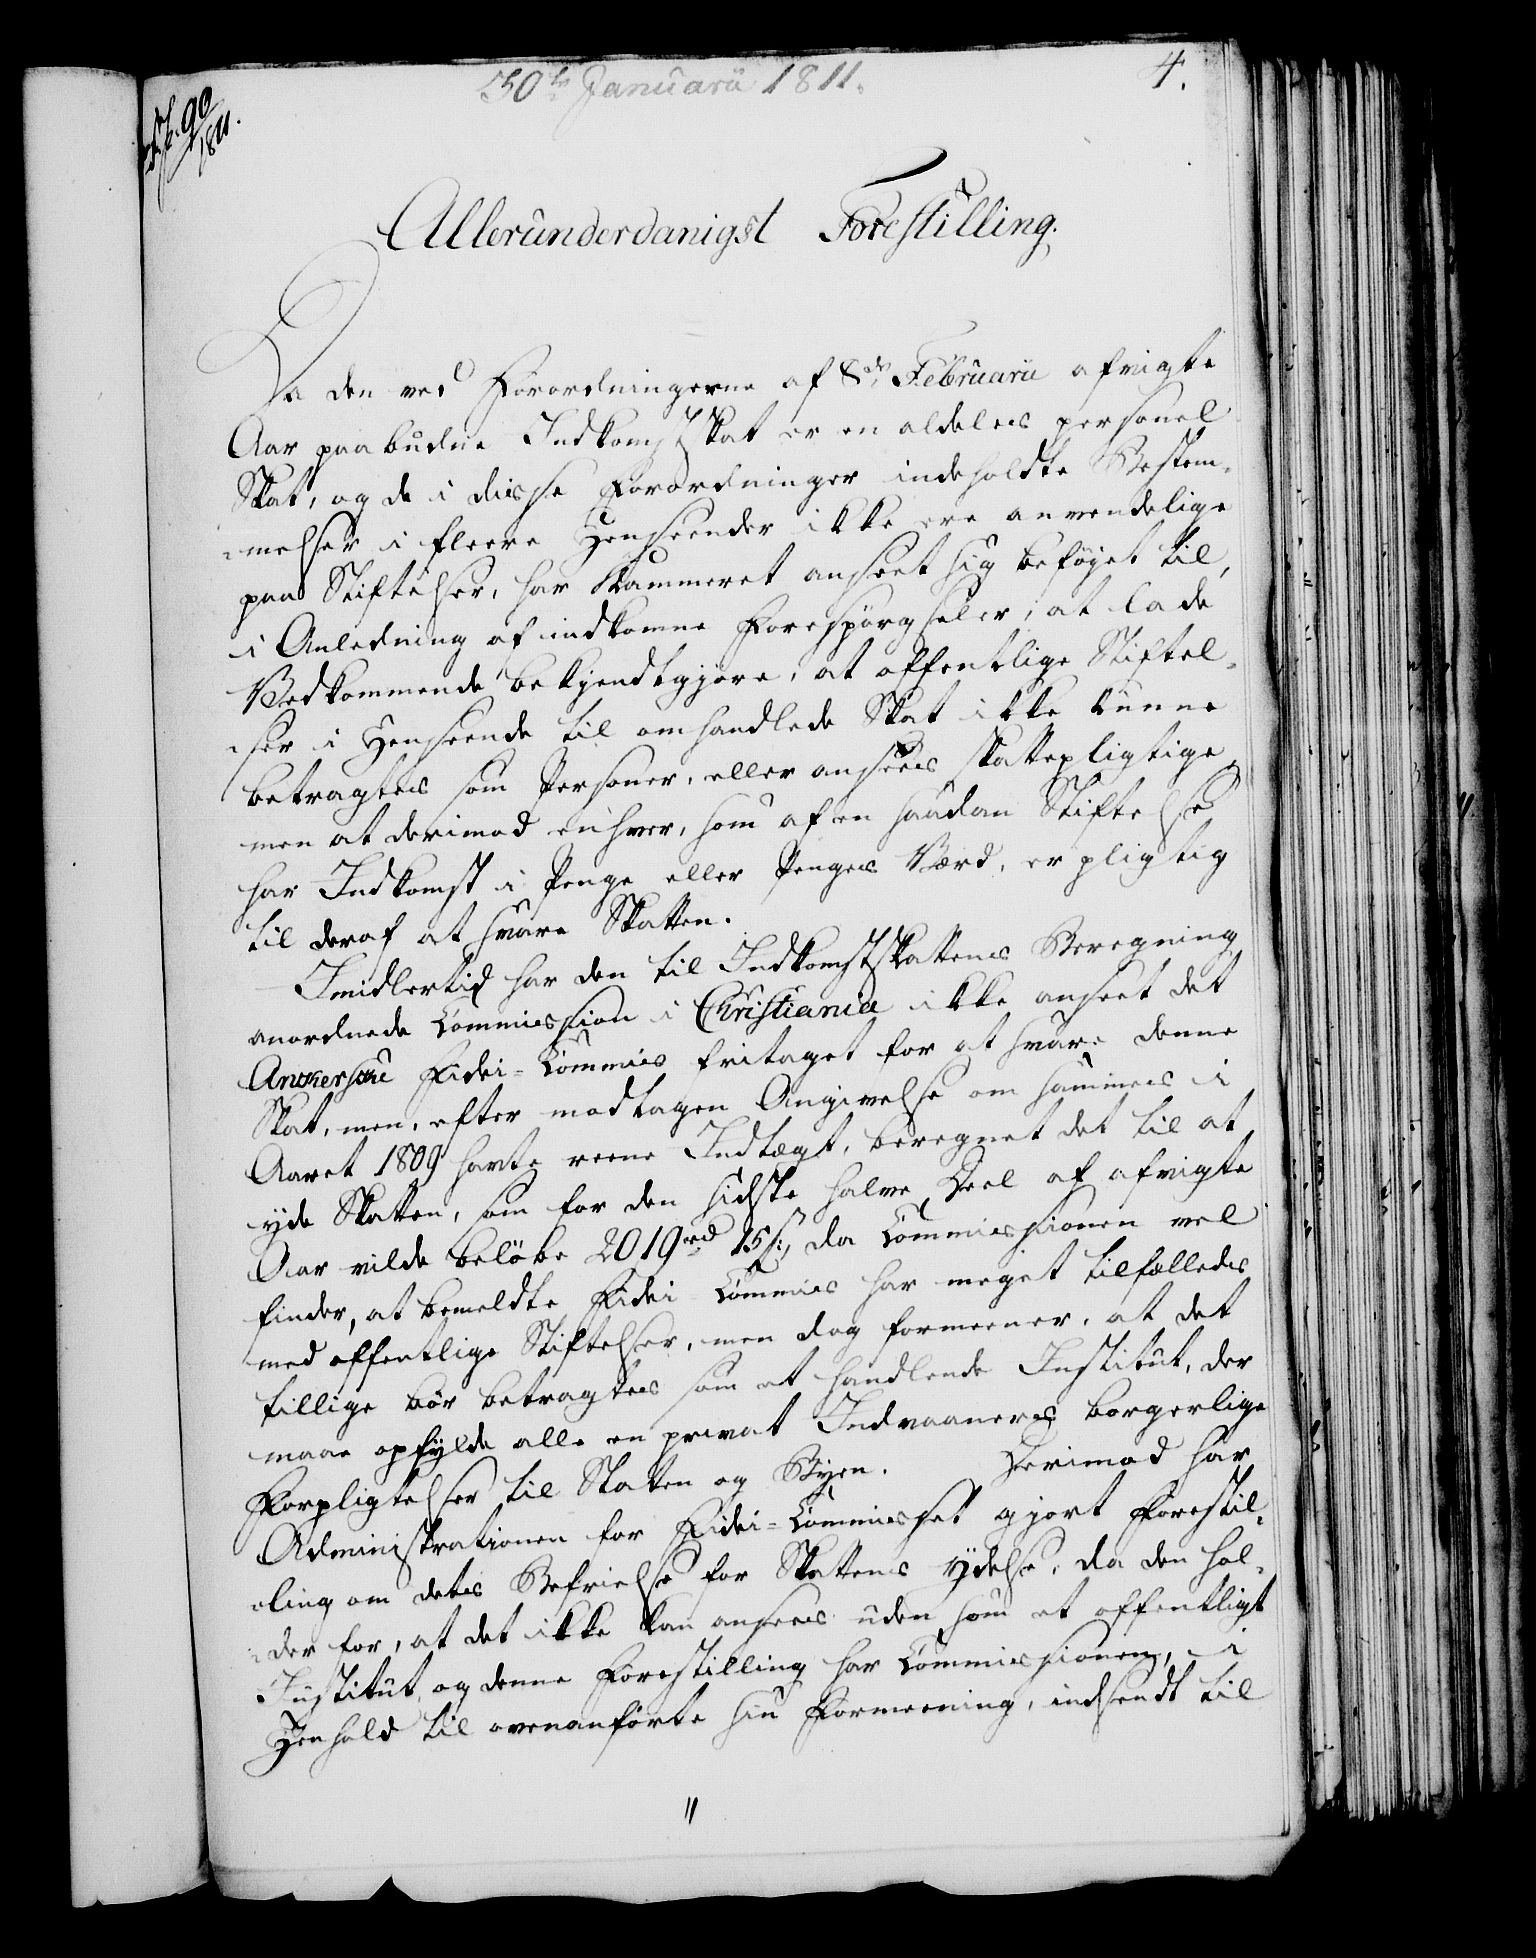 30te Januarii 1811.
4.
90/1811.
Allerunderdanigst Forestilling.
Da den ved Forordningerne af 8de Februarii afvigte
Aar paabudne Indkomstskat er en aldeles personel
Skat, og de i disse Forordninger indeholdte Bestem-
-melser i fleere Henseender ikke ere anvendelige
paa Stiftelser, har Kammeret anseet sig beföjet til,
i Anledning af indkomne Forespörgseler, at lade
Vedkommende bekjendtgjöre, at offentlige Stiftel-
-ser i Henseende til omhandlede Skat ikke kunne
betragtes som Personer, eller ansees skattepligtige,
men at derimod enhver, som af en saadan Stiftelse
har Indkomst i Penge eller Penges Værd, er pligtig
til deraf at svare Skatten.
Imidlertid har den til Indkomstskattens Beregning
anordnede Commission i Christiania ikke anseet det
Ankerske Fidei-Commis fritaget for at svare denne
Skat, men, efter modtagen Angivelse om sammes i
Aaret 1809 havte reene Indtægt, beregnet det til at
yde Skatten, som for den sidste halve Deel af afvigte
Aar vilde belöbe 2019 rd 15 s:, da Commissionen vel
finder, at bemeldte Fidei-Commis har meget tilfælleds
med offentlige Stiftelser, men dog formeener, at det
tillige bör betragtes som et handlende Institut, der
maae opfylde alle en privat Indvaaneres borgerlige
Forpligtelser til Staten og Byen. Derimod har
Administrationen for Fidei-Commisset gjort Forestil-
-ling om dets Befrielse for Skattens Ydelse, da den hol-
-der for, at det ikke kan ansees uden som et offentligt
Institut, og denne Forestilling har Commissionen, i
Henhold til ovenanförte sin Formeening, indsendt til